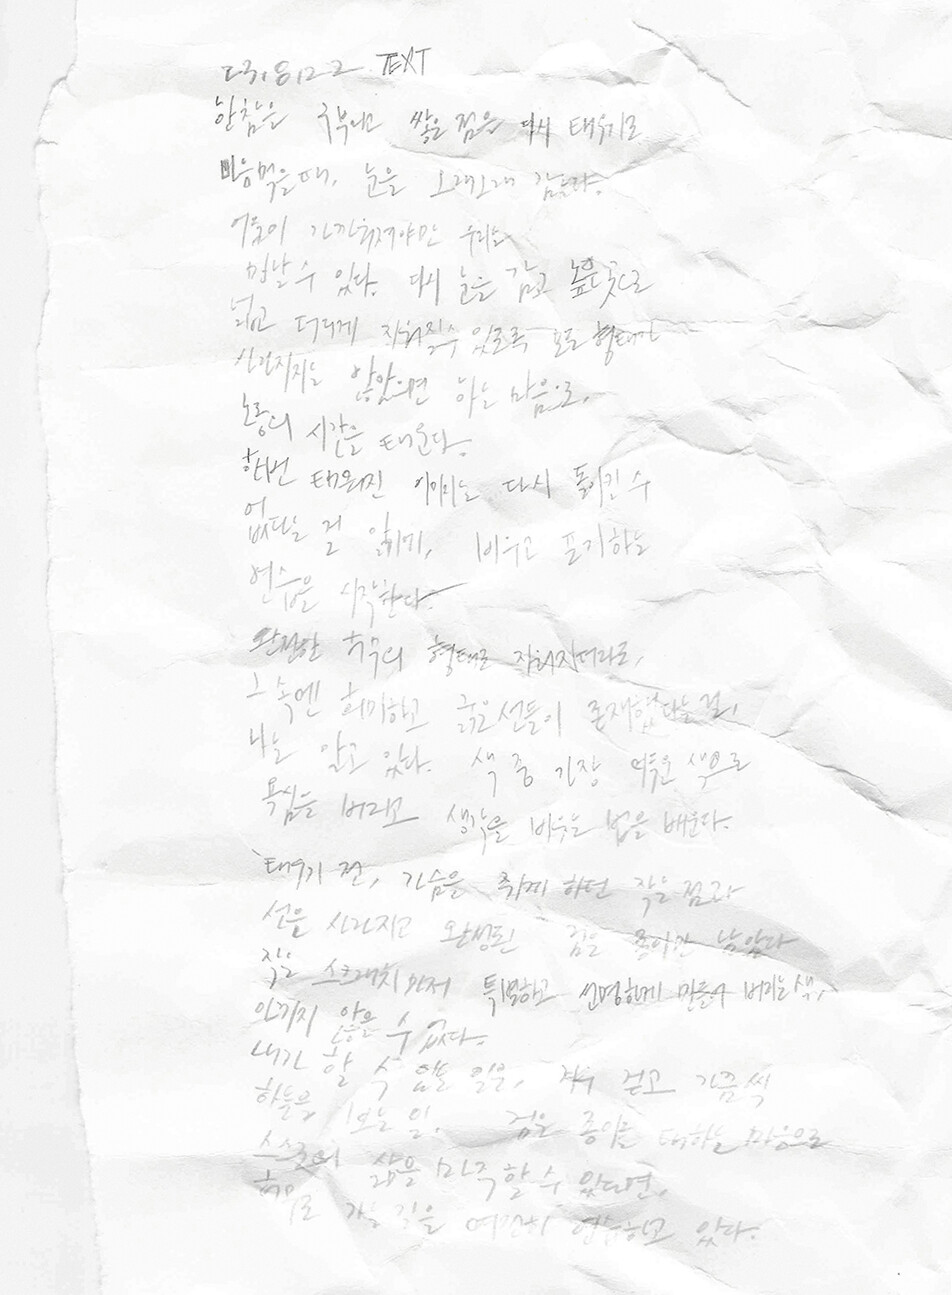 231822 TEXT
한참을 구부리고 쌓은 점을 다시 태우기로
마음먹을때, 눈을 오래오래 감는다.
어둠이 가까워져야만 우리는
만날 수 있다. 다시 눈을 감고 높은 곳으로
넓고 더디게 지워질 수 있도록 모든 형태가
사라지지는 않았으면 하는 마음으로,
노동의 시간을 태운다.
한번 태워진 이미지는 다시 돌이킬 수
없다는 걸 알기에, 비우고 포기하는
연습을 시작한다.
완전한 허구의 형태로 지워지더라도,
그 속엔 희미하고 굵은 선들이 존재했다는 걸,
나는 알고 있다. 색 중 가장 어두운 색으로
욕심을 버리고 생각을 비우는 법을 배운다.
태우기 전, 가슴을 취하게 하던 작은 점과
선은 사라지고 완성된 검은 종이만 남았다
작은 스크래치마저 특별하고 선명하게 만들어 버리는 색,
아끼지 않을 수 없다.
내가 할 수 있는 일은, 자주 걷고 가끔씩
하늘을 보는 일. 검은 종이를 대하는 마음으로
스스로의 삶을 마주할 수 있다면,
가는 길을 여전히 연습하고 있다.